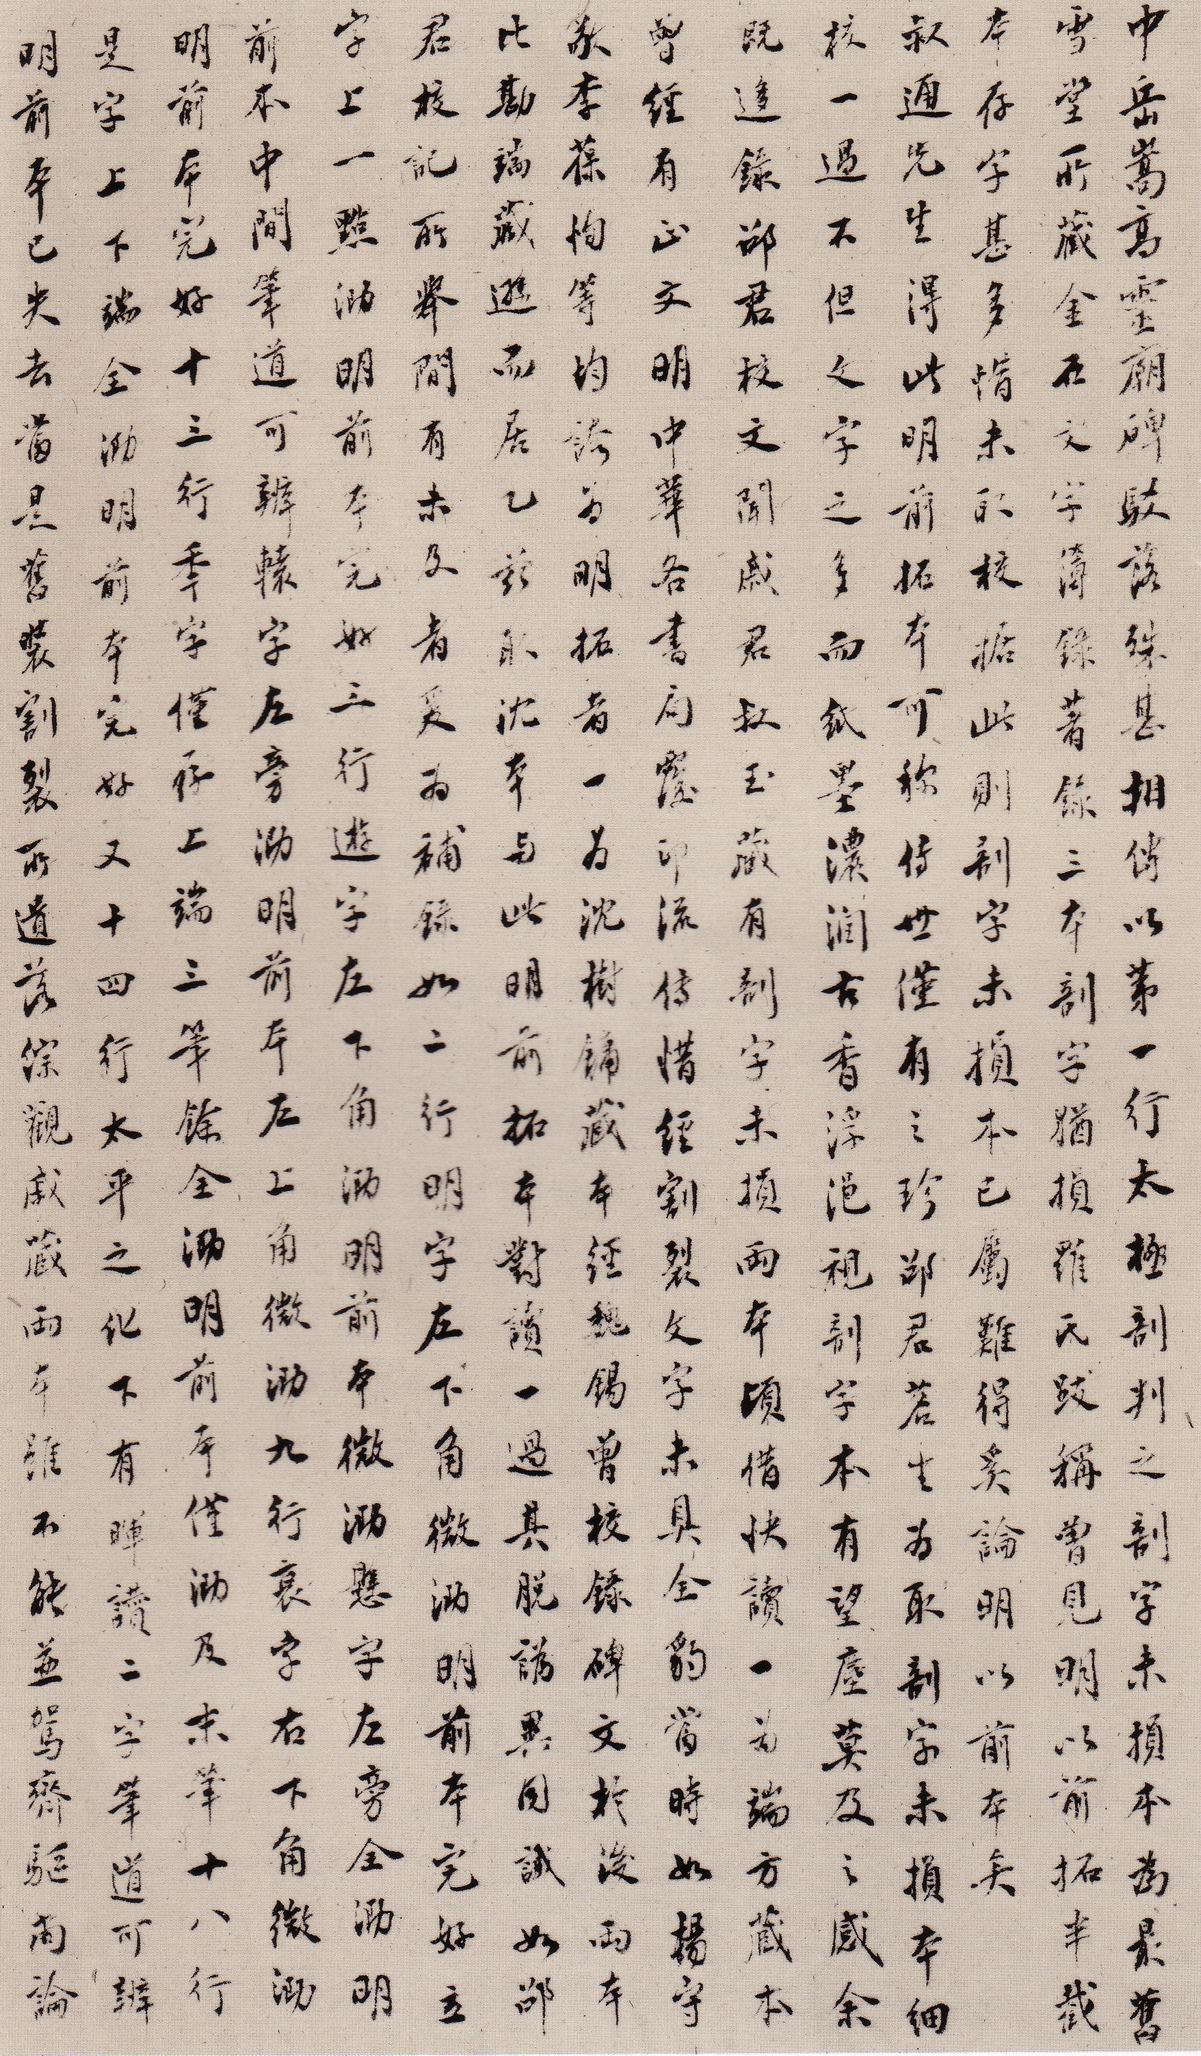 中岳嵩高靈廟碑駁落殊甚相傳以第一行太極剖判之剖字未損本為最舊
雪堂所藏金石文字簿錄著錄三本剖字猶損羅氏跋稱曾見明以前拓半截
本存字甚多惜未取校據此則剖字未損本已屬難得奚論明以前本矣
叔通先生得此明前拓本可稱傳世僅有之珍鄒君若生為取剖字未損本細
核一過不但文字之多而紙墨濃潤古香浮浥視剖字本有望塵莫及之感余
既追錄鄒君校文聞戚君叔玉藏有剖字未損兩本頃借快讀一為端方藏本
曾經有正文明中華各書局覆印流傳惜經割裂文字未具全豹當時如楊守
敬李葆恂等均誇為明拓者一為沈樹鏞藏本經魏錫曾校錄碑文於後兩本
比勘端藏遜而居乙茲取沈本與此明前拓本對讀一過其脫譌異同誠如鄒
君校記所舉間有未及者爰為補錄如二行明字左下角微泐明前本完好立
字上一點泐明前本完好三行遊字左下角泐明前本微泐懸字左旁全泐明
前本中間筆道可辨轅字左旁泐明前本左上角微泐九行衰字右下角微泐
明前本完好十三行季字僅存上端三筆餘全泐明前本僅泐及末筆十八行
是字上下端全泐明前本完好又十四行太平之化下有暉讚二字筆道可辨
明前本已失去當是舊裝割裂所遺落綜觀戚藏兩本雖不能並駕齊驅尚論